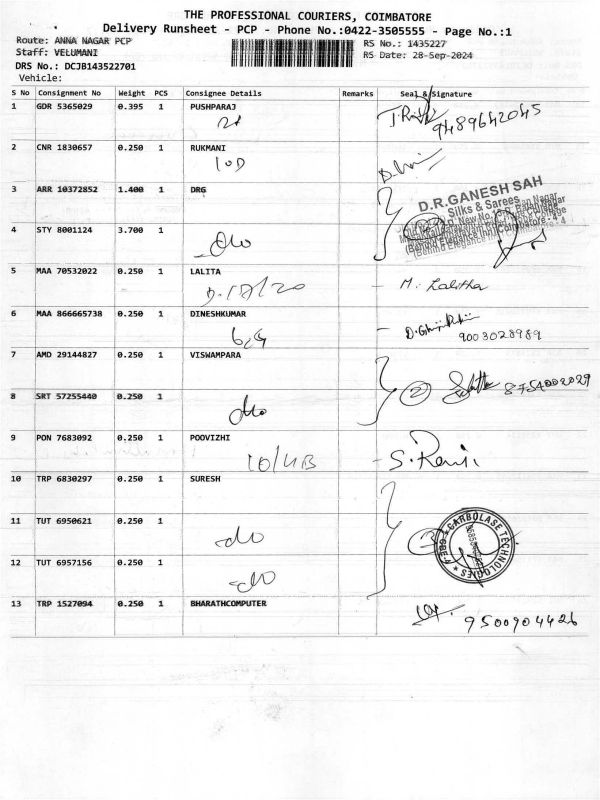 THE PROFESSIONAL COURIERS, COIMBATORE
Delivery Runsheet - PCP - Phone No.:0422-3505555 - Page No.:1
Route: ANNA NAGAR PCP RS No.: 1435227
Staff: VELUMANI RS Date: 28-Sep-2024
DRS No.: DCJB143522701
Vehicle:
S No Consignment No Weight PCS Consignee Details Remarks Seal & Signature
1 GDR 5365029 0.395 1 PUSHPARAJ
9489642045
2 CNR 1830657 0.250 1 RUKMANI
10D
3 ARR 10372852 1.400 1 DRG
D.R.GANESH SAH
Silks & Sarees
4 STY 8001124 3.700 1
do
5 MAA 70532022 0.250 1 LALITA M. Lalitha
D.17/20
6 MAA 866665738 0.250 1 DINESHKUMAR
6G 9003028989
7 AMD 29144827 0.250 1 VISWAMPARA
2 8754002029
8 SRT 57255440 0.250 1
do
9 PON 7683092 0.250 1 POOVIZHI
10/4B S. Rani
10 TRP 6830297 0.250 1 SURESH
11 TUT 6950621 0.250 1
do 3 CARBOLASE TECHNOLOGIES
12 TUT 6957156 0.250 1
do
13 TRP 1527094 0.250 1 BHARATHCOMPUTER
9500904426